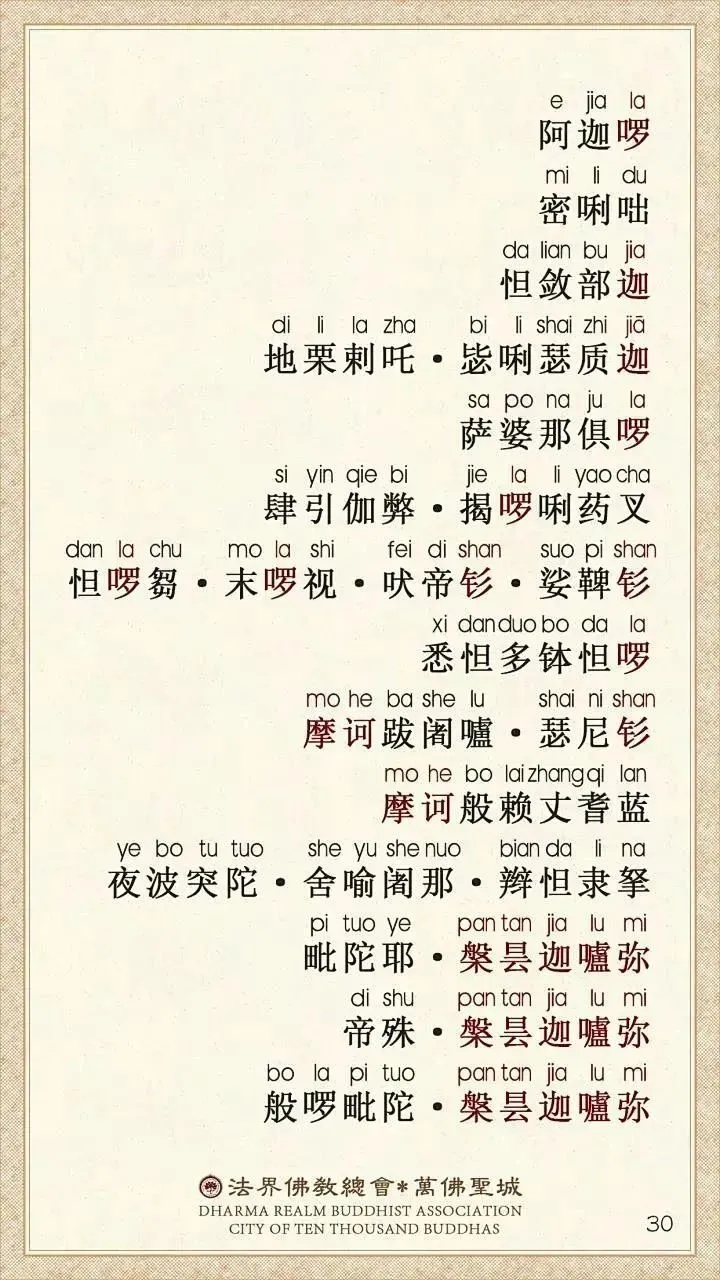 e jia la
阿迦啰
mi li du
密唎咄
da lian bu jia
怛敛部迦
di li la zha bi li shai zhi jiā
地栗剌吒·毖唎瑟质迦
sa po na ju la
萨婆那俱啰
si yin qie bi jie la li yao cha
肆引伽弊·揭啰唎药叉
dan la chu mo la shi fei di shan suo pi shan
怛啰刍·末啰视·吠帝钐·娑鞞钐
xi dan duo bo da la
悉怛多钵怛啰
mo he ba she lu shai ni shan
摩诃跋阇嚧·瑟尼钐
mo he bo lai zhang qi lan
摩诃般赖丈耆蓝
ye bo tu tuo she yu she nuo bian da li na
夜波突陀·舍喻阇那·辫怛隶拏
pi tuo ye pan tan jia lu mi
毗陀耶·槃昙迦嚧弥
di shu pan tan jia lu mi
帝殊·槃昙迦嚧弥
bo la pi tuo pan tan jia lu mi
般啰毗陀·槃昙迦嚧弥
法界佛教總會*萬佛聖城
DHARMA REALM BUDDHIST ASSOCIATION
CITY OF TEN THOUSAND BUDDHAS
30